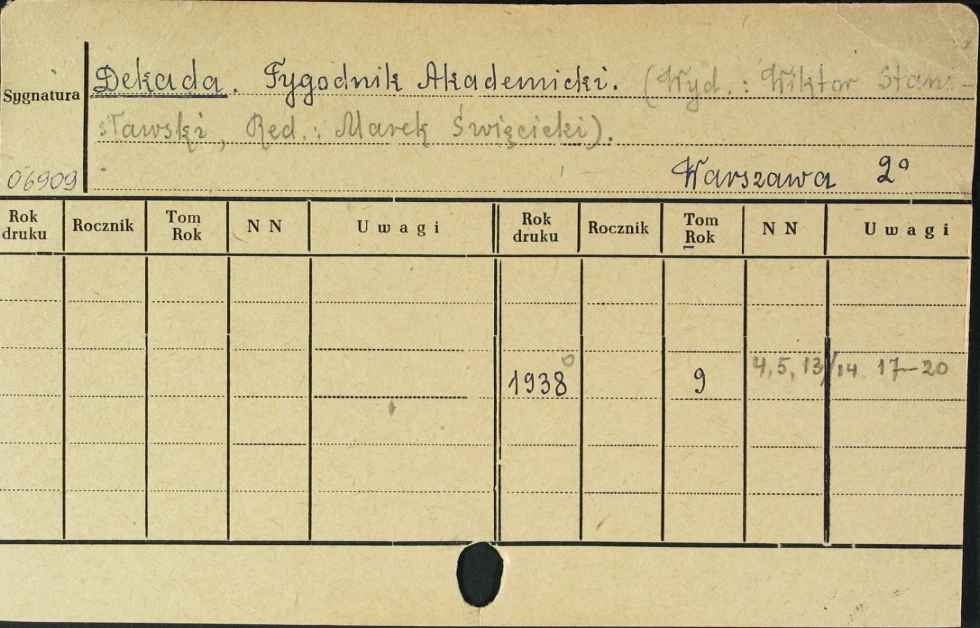 Dekada. Tygodnik Akademicki. (Wyd.: Wiktor Stani-
Sygnatura
sławski, Red.: Marek Święcicki).
06909
Warszawa 2°
Rok druku Rocznik Tom Rok NN Uwagi Rok druku Rocznik Tom Rok NN Uwagi
1938 9 4, 5, 13/14. 17-20